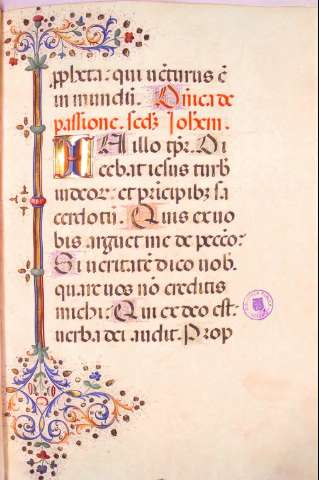 ppheta: qui uēturus ē
in mundū. Dnīca de
passione. secdȝ Iohem.
IN illo tpr. Di
cebat iesus turb
iudeor: et prīcipibȝ sa
cerdotū. Quis ex uo
bis arguet me de peccō?
Si ueritatē dico uob.
quare uos nō creditis
michi? Qui ex deo est:
uerba dei audit. Prop